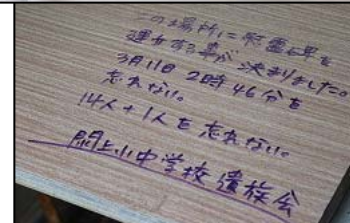 この場所に慰霊碑を
建立する事が決まりました。
3月11日 2時46分を
忘れない。
14人+1人を忘れない。
閖上小中学校 遺族会